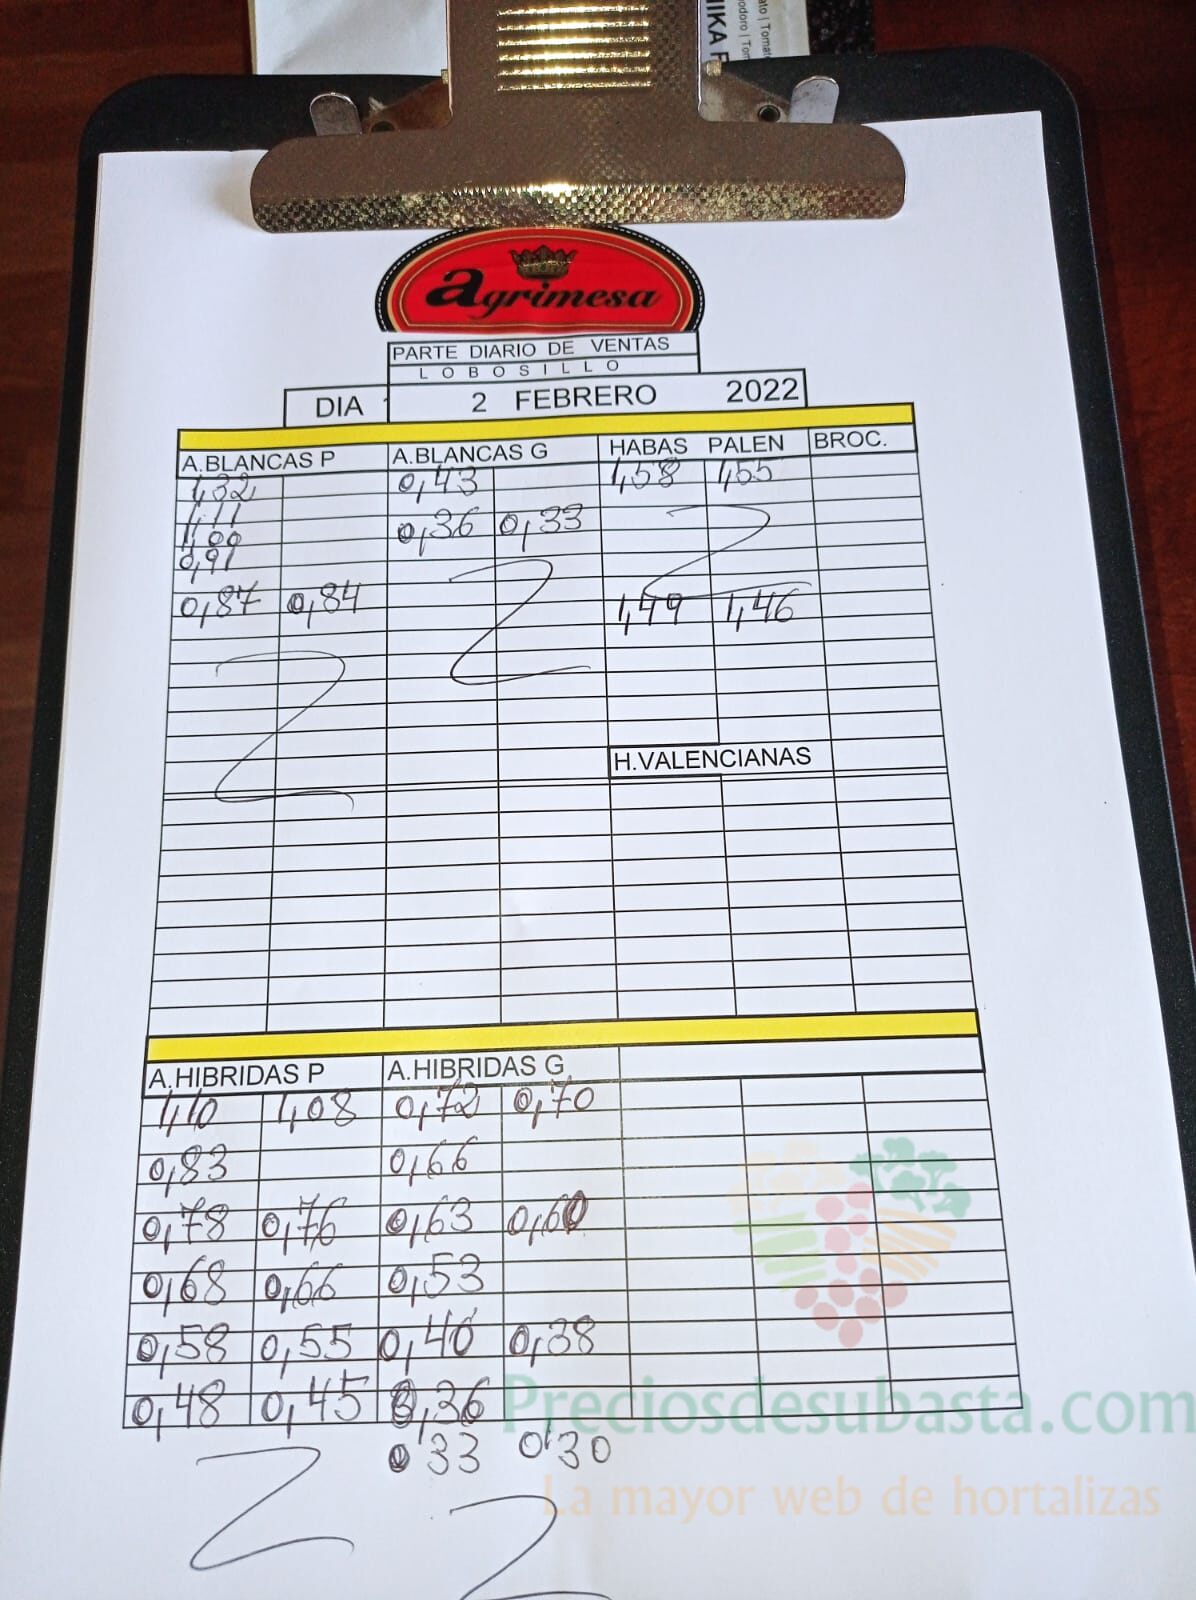 NIKA
agrimesa
PARTE DIARIO DE VENTAS
LOBOSILLO
DIA 2 FEBRERO 2022
A.BLANCAS P A.BLANCAS G HABAS PALEN BROC.
1,32 0,43 1,58 1,55
1,11
1,00 0,36 0,33
0,91
0,87 0,84 1,49 1,46
H.VALENCIANAS
A.HIBRIDAS P A.HIBRIDAS G
1,10 1,08 0,72 0,70
0,83 0,66
0,78 0,76 0,63 0,60
0,68 0,66 0,53
0,58 0,55 0,40 0,38
0,48 0,45 0,36
0'33 0'30
Preciosdesubasta.com
La mayor web de hortalizas